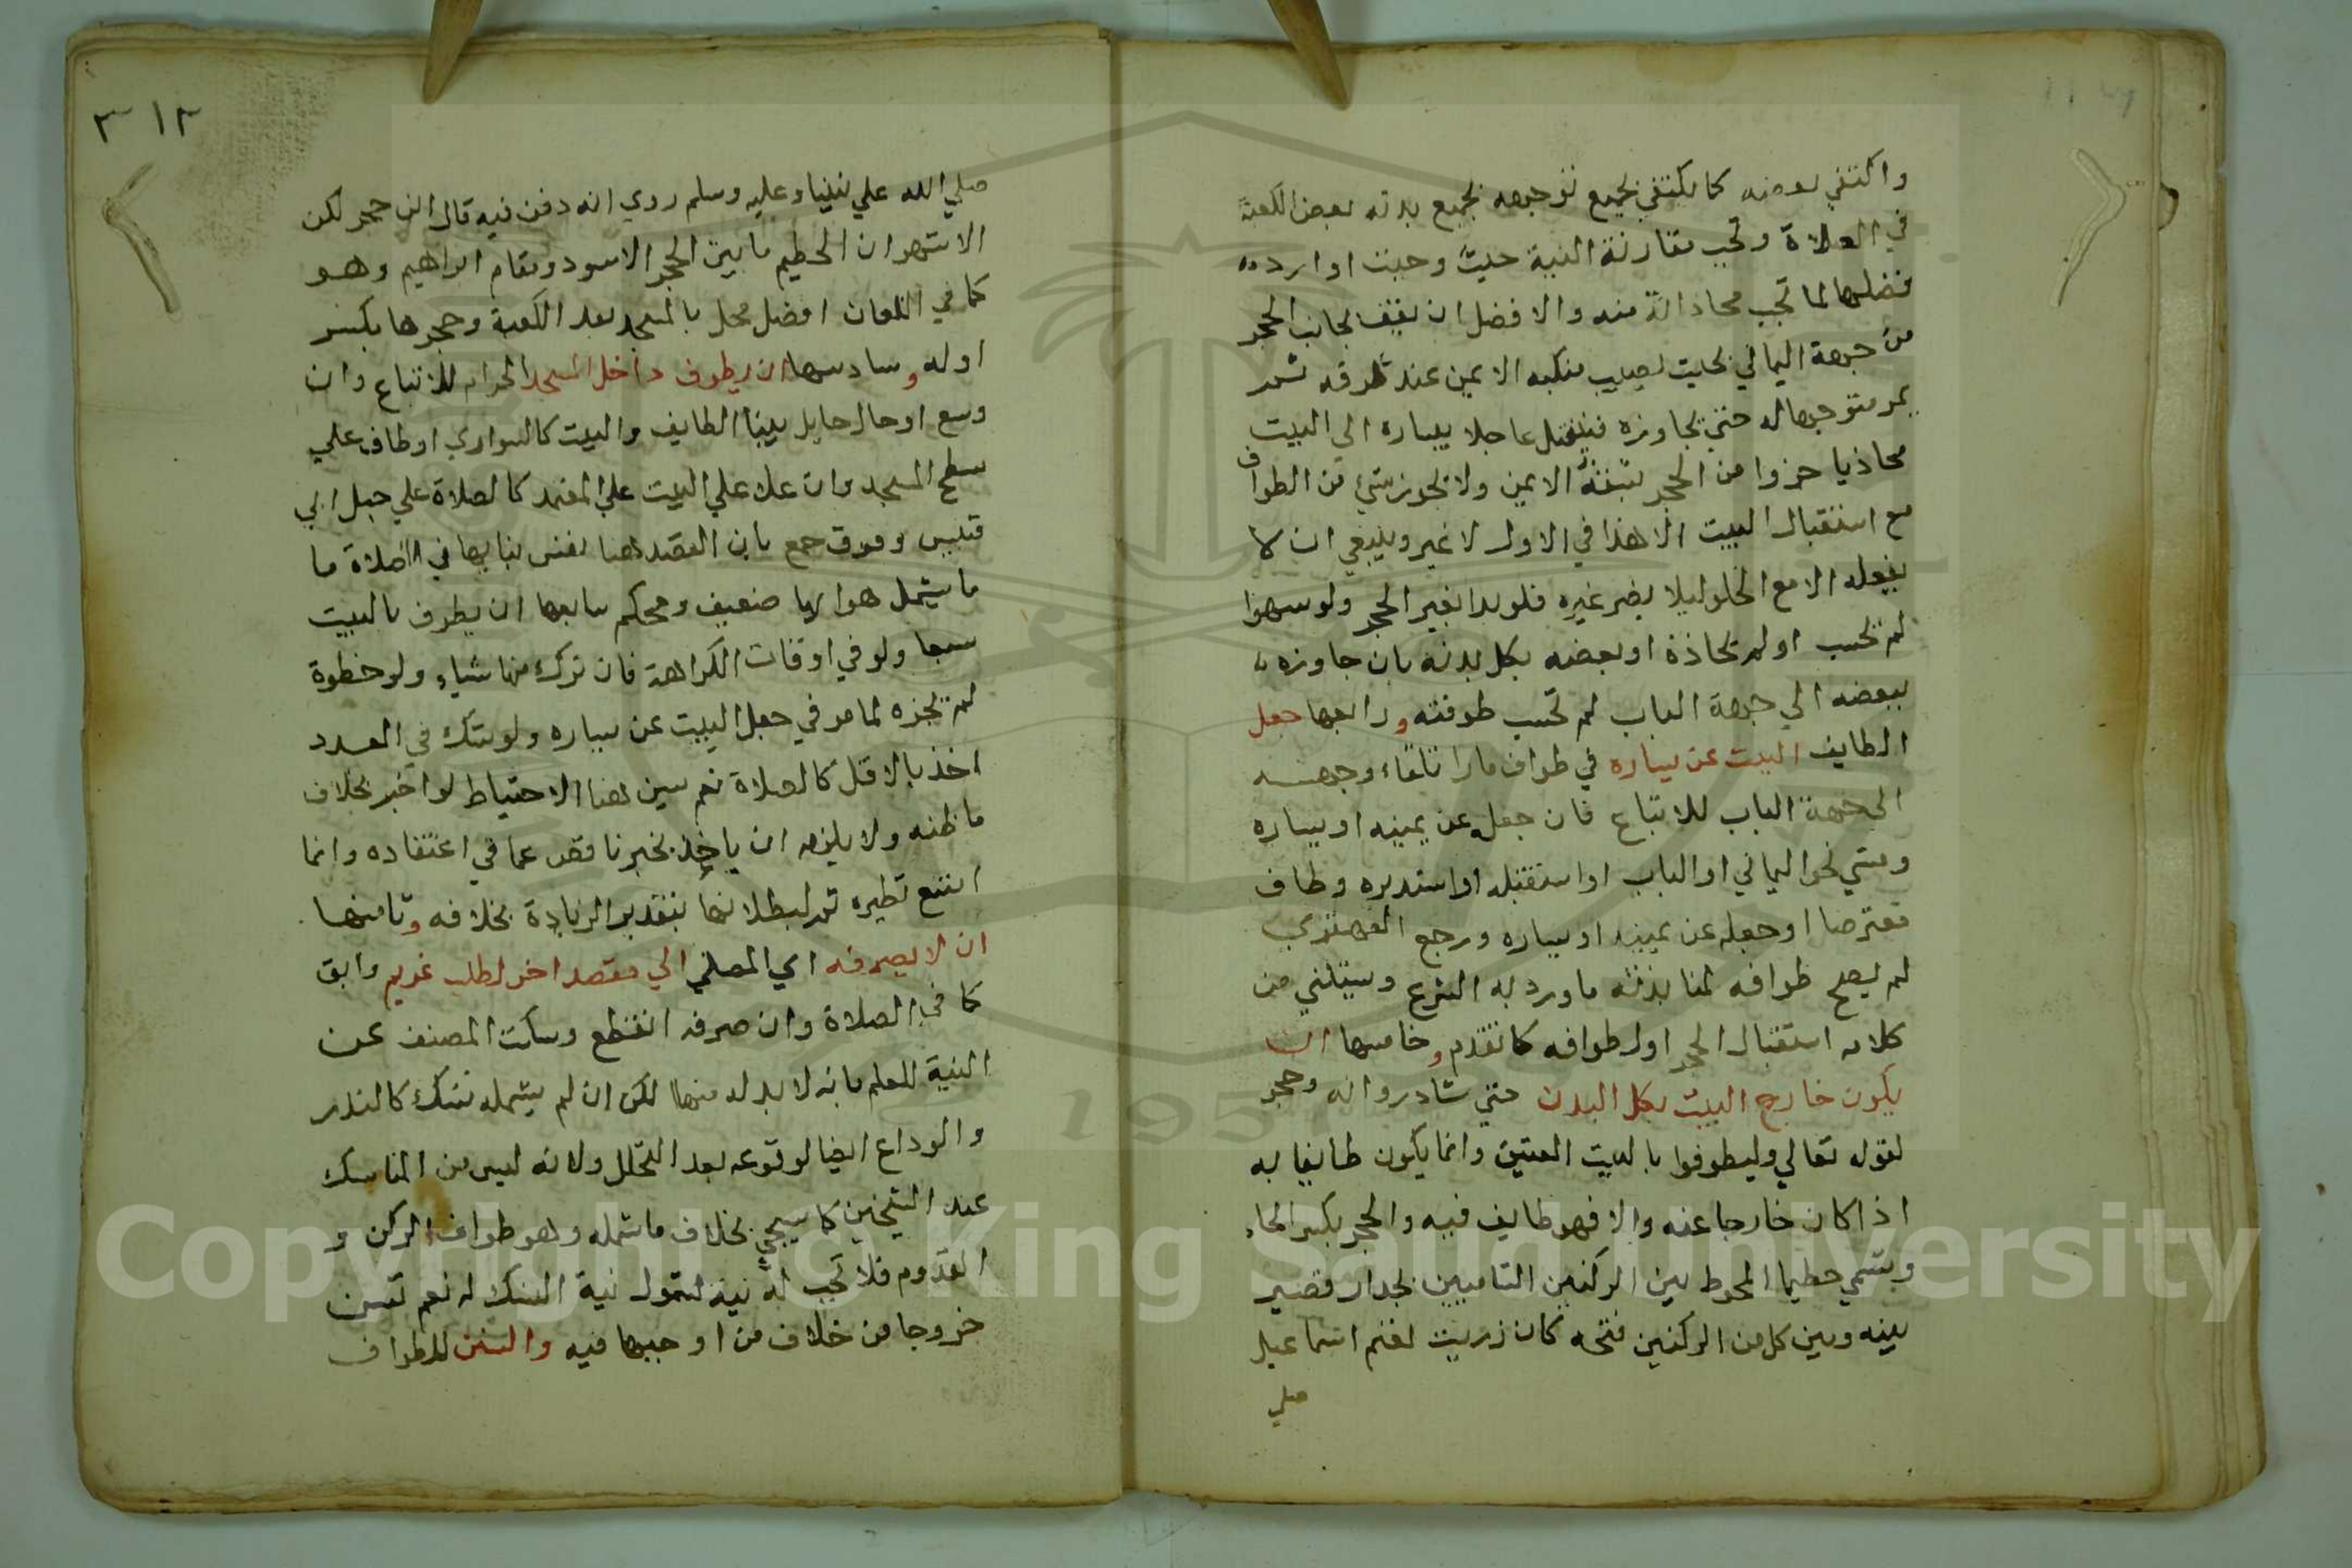 واكتفي ببعضه كما يكتفي بجميع توجهه بجميع بدنه ببعض الكعبة
في الصلاة وتجب مقارنة النية حيث وجبت او اراد
فضلها لما تجب محاذاته منه والافضل ان يقف بجانب الحجر
من جهة اليماني بحيث يصيب منكبه الايمن عند طرفه ثم
يمر متوجها له حتي يجاوزه فينفتل جاعلا يساره الي البيت
محاذيا جزوا من الحجر بشقه الايمن ولا يجوز شئ من الطواف
مع استقبال البيت الا هذا في الاول لا غير وينبغي ان لا
يفعله الا مع الخلو ليلا يضر غيره فلو بدا بغير الحجر ولو سهوا
لم يحسب او لم يحاذه او بعضه بكل بدنه بان جاوزه
ببعضه الي جهة الباب لم تحسب طوفته ورابعها جعل
الطايف البيت عن يساره في طوافه مارا تلقاء وجهه
الي جهة الباب للاتباع فان جعله عن يمينه او يساره
ومشي نحو اليماني او الباب او استقبله او استدبره وطاف
معترضا او جعله عن يمينه او يساره ورجع القهقري
لم يصح طوافه لمنابذته ما ورد به الشرع وسيتثني من
كلامه استقبال الحجر اول طوافه كما تقدم وخامسها ان
يكون خارج البيت بكل البدن حتي شادروانه وحجر
لقوله تعالي وليطوفوا بالبيت العتيق وانما يكون طايفا به
اذا كان خارجا عنه والا فهو طايف فيه والحجر بكسر الحاء
ويسمي حطيما المحوط بين الركنين الشاميين بجدار قصير
بينه وبين كل من الركنين فتحه كان زريبة لغنم اسماعيل
صلي
٣١٢
صلي الله علي نبينا وعليه وسلم روي انه دفن فيه قال ابن حجر لكن
الاشهر ان الحطيم ما بين الحجر الاسود ومقام ابراهيم وهو
كما في اللعان افضل محل بالمسجد بعد الكعبة وحجرها بكسر
اوله وسادسها ان يطوف داخل المسجد الحرام للاتباع وان
وسع او حال حايل بين الطايف والبيت كالسواري او طاف علي
سطح المسجد وان علا علي البيت علي المعتمد كالصلاة علي جبل ابي
قبيس وفرق جمع بان القصد هنا نفس بنايها في الصلاة ما
ما يشمل هواها ضعيف ومحكم سابعها ان يطوف بالبيت
سبعا ولو في اوقات الكراهة فان ترك منها شياء ولو خطوة
لم يجزه لما مر في جعل البيت عن يساره ولو شك في العدد
اخذ بالاقل كالصلاة نعم يسن هنا الاحتياط لو اخبر بخلاف
ما ظنه ولا يلزمه ان ياخذ بخبر ناقص عما في اعتقاده وانما
امتنع نظيره ثم لبطلانها بتقدير الزيادة بخلافه وثامنها
ان لا يصرفه اي المصلي الي مقصد اخر لطلب غريم وابق
كما في الصلاة وان صرفه انقطع وسكت المصنف عن
النية للعلم بانه لا بد له منها لكن ان لم يشمله نسك كالنذر
والوداع ايضا لوقوعه بعد التحلل ولانه ليس من المناسك
عند الشيخين كما سيجي بخلاف ما شمله وهو طواف الركن و
القدوم فلا تجب له نية لشمول نية النسك له نعم تسن
خروجا من خلاف من اوجبها فيه والسنن للطواف
Copyright © King Saud University
1957